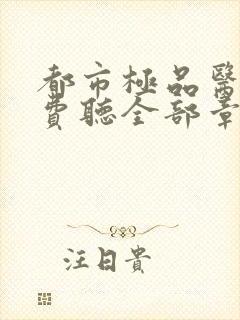 都市極品醫
費聽全部章
注日貴